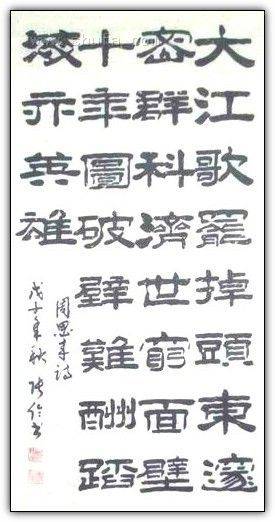 大江歌罷掉頭東邃
密群科濟世窮面壁
十年圖破壁難酬蹈
海亦英雄
周恩来詩
戊子年秋